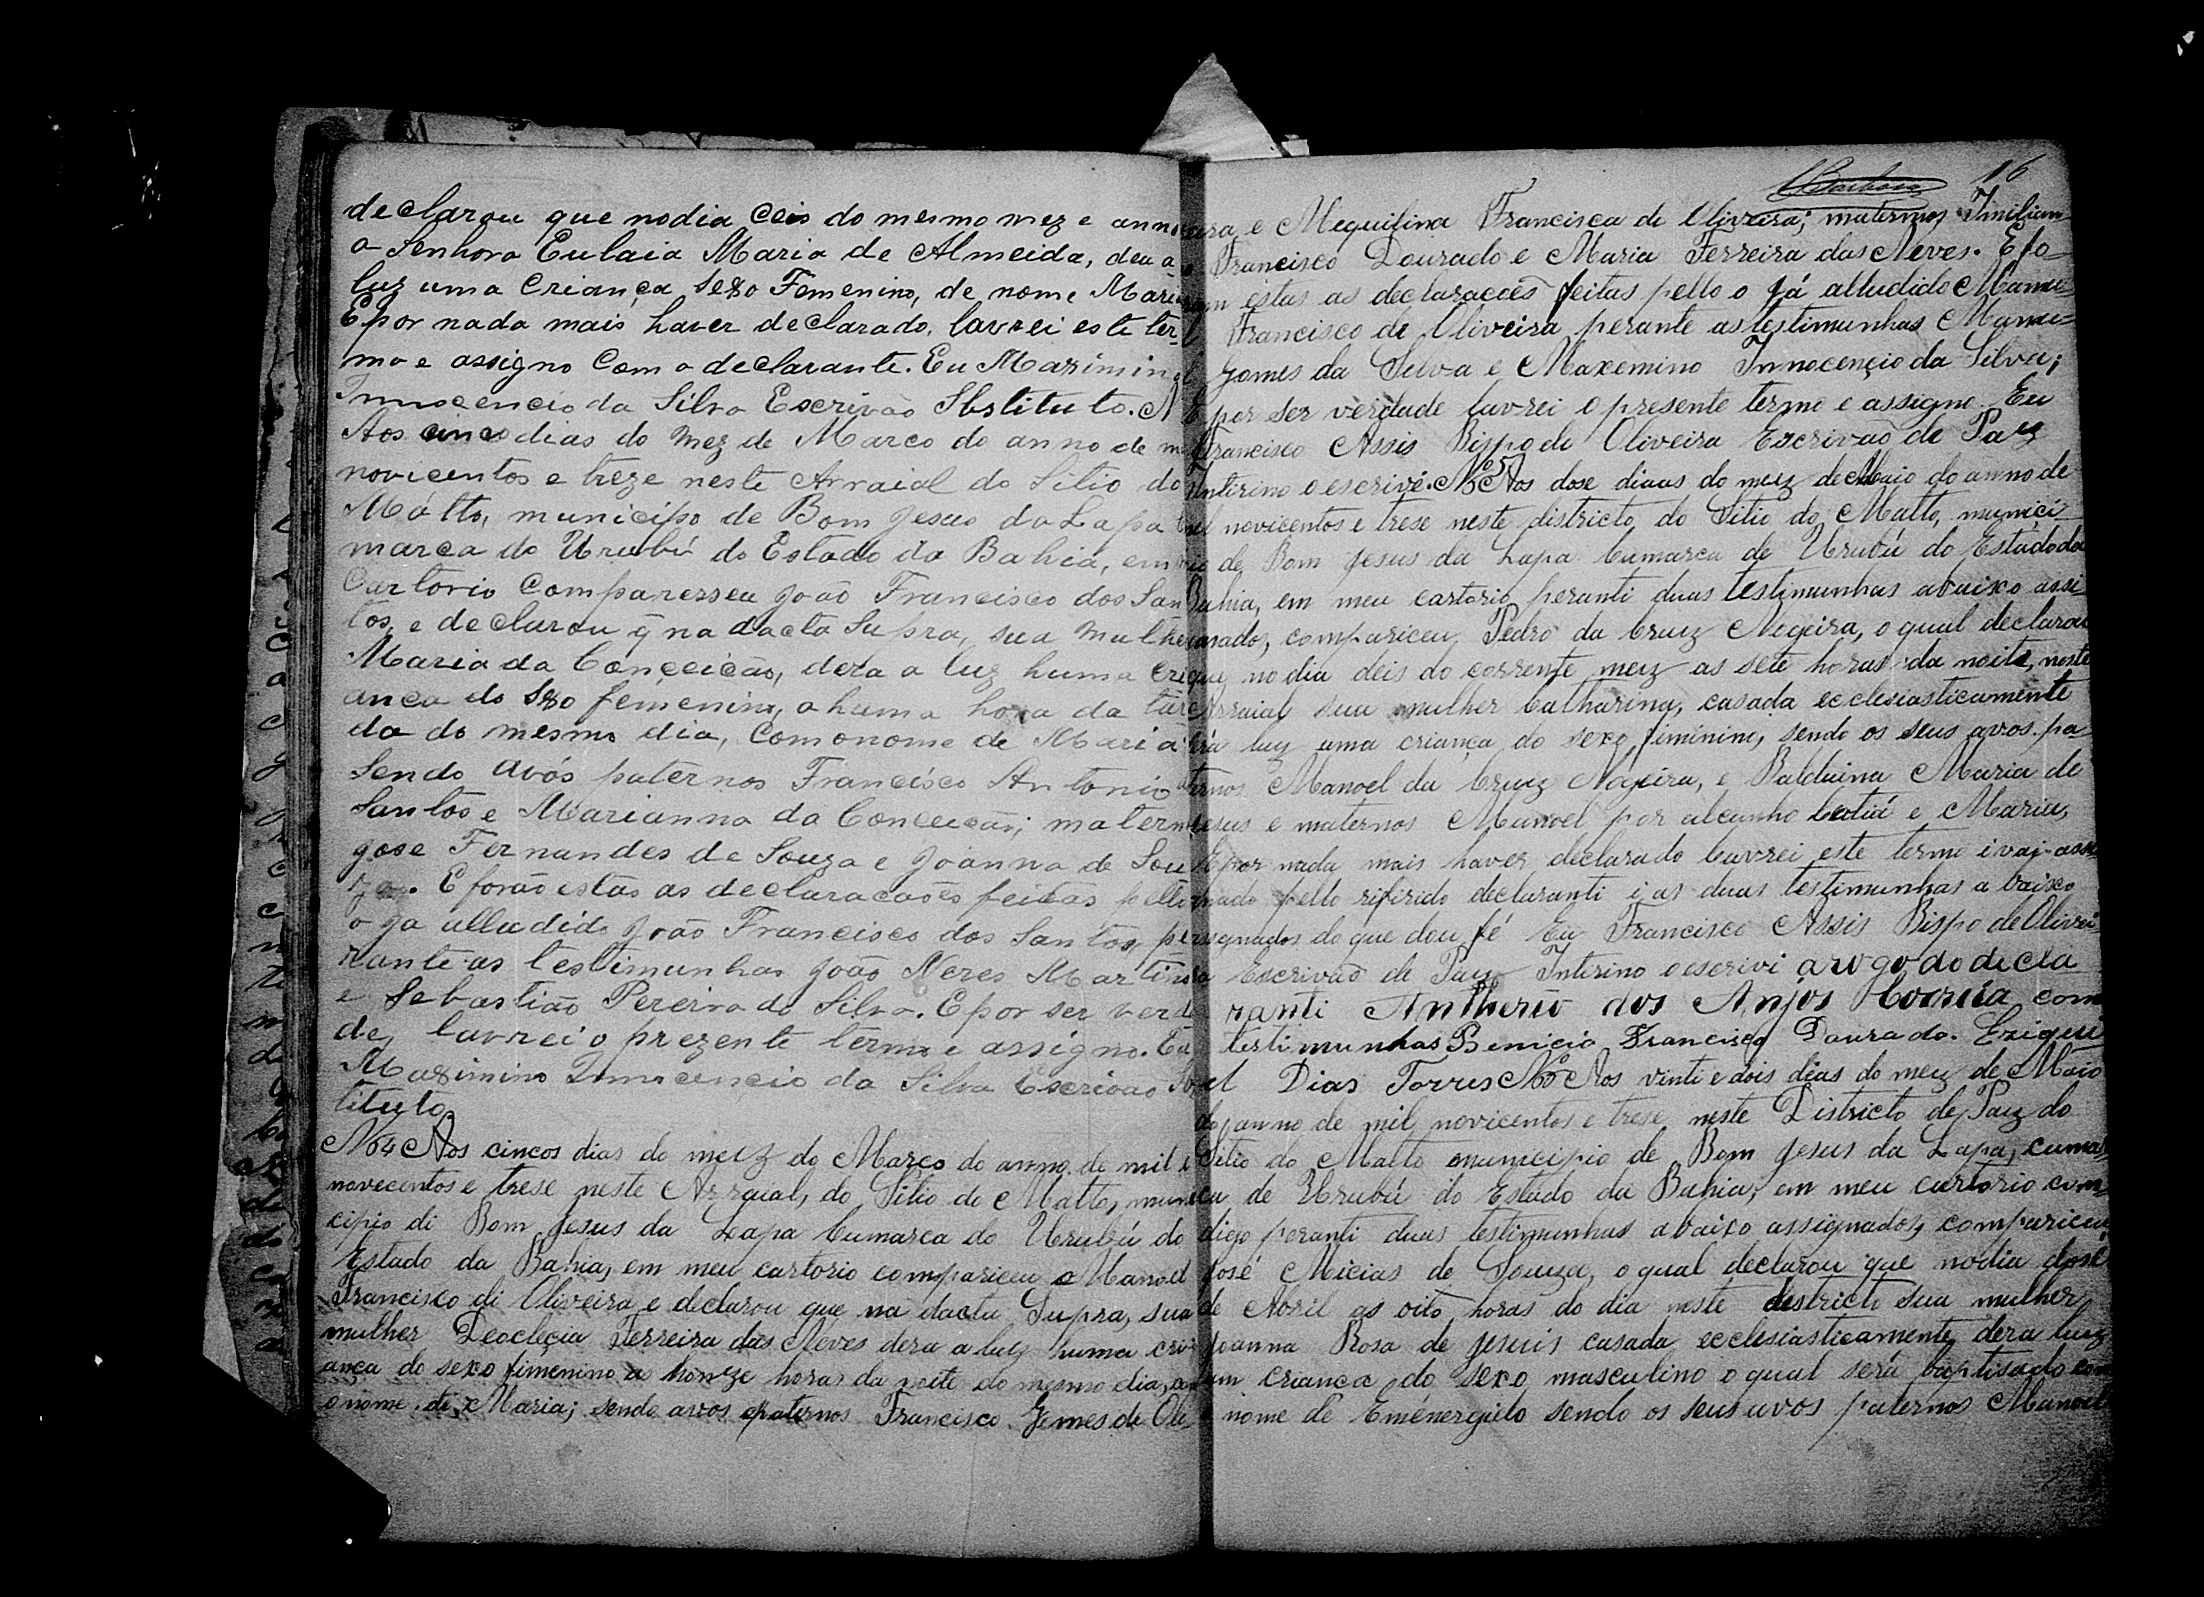 declarou que no dia ceis do mesmo mez e anno
a Senhora Eulaia Maria de Almeida, deu a
luz uma Criança Sexo Femenino, de nome Maria
E por nada mais haver declarado, lavrei este ter-
mo e assigno Com o declarante. Eu Maximino
Innocencio da Silva Escrivão Sbstituto. N
Aos cinco dias do Mez de Marco do anno de mil
novicentos e treze neste Arraial do Sitio do
Mátto, municipo de Bom Jesus da Lapa
marca do Urubú do Estado da Bahia, em
Cartorio Comparesseu João Francisco dos San
tos, e declarou q̃ na dacta Supra, sua Mulher
Maria da Conçeicão, dera a luz huma Cri
anca do Sexo femenino, a huma hora da tar
da do mesmo dia, Com o nome de Maria
Sendo avós paternos Francisco Antonio
Santos e Marianna da Conceicão; matern
Jose Fernandes de Souza e Joanna de Sou
za. E forão estas as declaracaões feitas pello
o ja alludido João Francisco dos Santos, pe
rante as testimunhas João Neres Martins
e Sebastião Pereira da Silva. E por ser verda
de, lavrei o prezente termo e assigno. Eu
Maximino Innocencio da Silva Escrivão Sbs
tituto.
No 4 Aos cincos dias do meiz do Março do anno de mil e
novecentos e trese neste Arraial, do Sitio do Matto, muni
cipio di Bom Jesus da Lapa Cumarca do Urubú do
Estado da Bahia, em meu cartorio compariceu o Manoel
Francisco di Oliveira e declarou que na dacta Supra, sua
mulher Deoclecia Ferreira das Neves dera a luz huma cri
anca do sexo fimenino as honze horas da noite do mesmo dia, com
o nome di Maria; sendo avos paternos Francisco Gomes de Oli
Barbosa 16
eira, e Mequilina Francisca de Oliveira; maternos Imilian
o Francisco Dourado e Maria Ferreira das Neves. E fo-
ram estas as declaracoẽs feitas pello o já alludido Manu-
el Francisco de Oliveira perante as testimunhas Manu-
el Gomes da Silva e Maxemino Innocençio da Silva;
E por ser verdade lavrei o presente termo e assigno. Eu
Francisco Assis Bispo de Oliveira Escrivaõ de Paz
Interino o escrivé. No 5 Aos dose diaas do meiz de Maio do anno de
mil novicentos e trese neste districto do Sitio do Matto, municí
pio de Bom Jesus da Lapa Cumarca de Urubú do Estado da
Bahia, em meu cartorio peranti duas testimunhas abaixo assi
gnados, compariceu Pedro da Cruiz Nogeira, o qual declarou
que no dia deis do corrente meiz as sete horas da noite, neste
Arraial sua mulher Catharina, casada ecclesiasticamente
luiz uma criança do sexo fiminino, sendo os seus avos pa
ternos Manoel da Cruiz Nogeira, e Balduina Maria de
Jesus e maternos Manoel por alcunho Cotiá e Maria,
E por nada mais haver declarado lavrei este termo i vai assi
gnado pello rifirido declaranti i as duas testimunhas a baixo
assignados do que dou fé Eu Francisco Assis Bispo de Olivei
ra Escrivaõ de Paiz Interino o escrivi a rogo do decla
ranti Antherio dos Anjos Correia com
testimunhas Benicio Francisco Dourado. Eziqui
el Dias Torres No 6 Aos vinti e dois dias do meiz de Maio
do anno de mil novicentos e trese neste Districto de Paiz do
Sitio do Matto municipio de Bom Jesus da Lapa, cumar
ca de Urubú do Estado da Bahia, em meu cartorio com
digo peranti duas testimunhas abaixo assignados, compariceu
José Micias de Souza, o qual declarou que no dia dose
de Abril as oito horas do dia neste destricto sua mulher
Joanna Rosa de Jesuis casada ecclesiasticamente dera luiz
um crianca do sexo masculino o qual será baptisado com
o nome de Eménergildo sendo os seus avos paternos Manoel